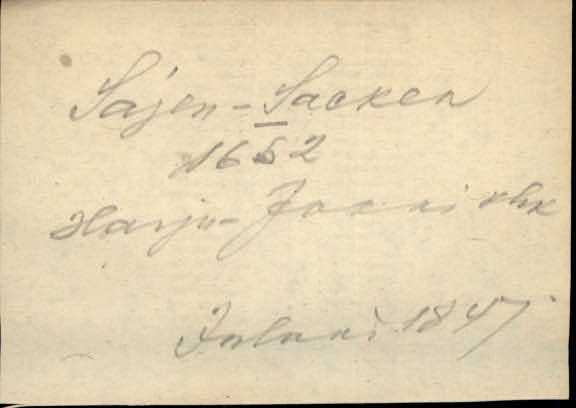 Sajen-Sacken
1652
Harju-Jaani khk
Jaani 1847